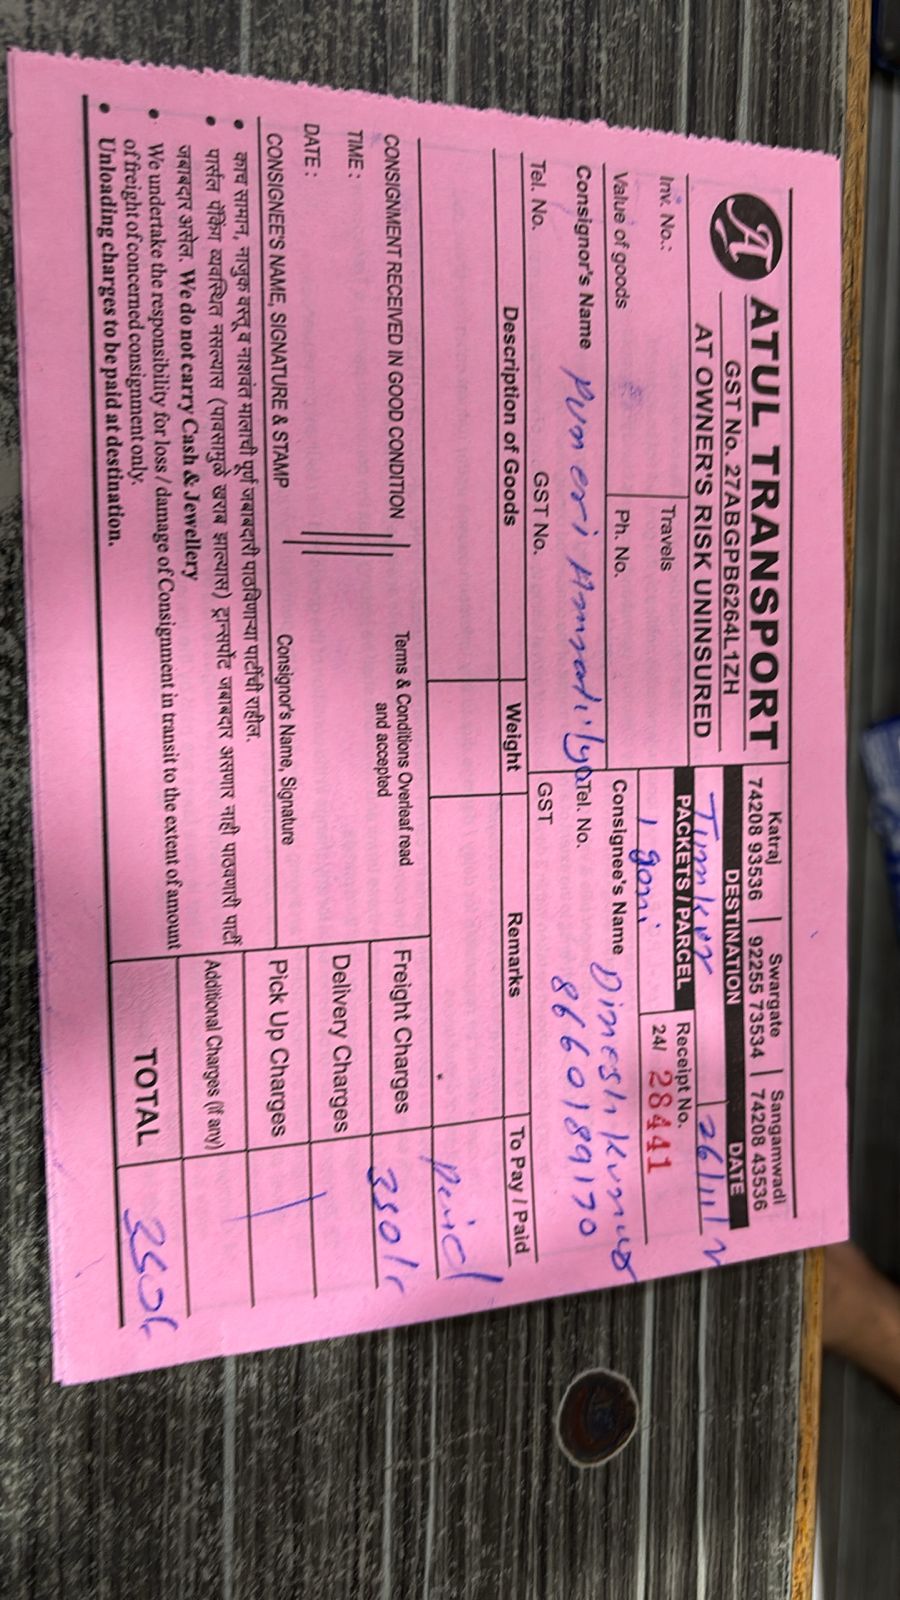 ATUL TRANSPORT
GST No. 27ABGPB6264L1ZH
AT OWNER'S RISK UNINSURED
Katraj
74208 93536
Swargate
92255 73534
Sangamwadi
74208 43536
DESTINATION
DATE
Tumkur
26/11/
Inv. No.:
Travels
PACKETS / PARCEL
Receipt No.
1 goni
24/ 28441
Value of goods
Ph. No.
Consignor's Name Puneri
Consignee's Name Dinesh Kumar
Tel. No. 8660189170
Tel. No.
GST No.
GST
Description of Goods
Weight
Remarks
To Pay / Paid
Paid
CONSIGNMENT RECEIVED IN GOOD CONDITION
Terms & Conditions Overleaf read
and accepted
TIME :
DATE :
CONSIGNEE'S NAME, SIGNATURE & STAMP
Consignor's Name, Signature
Freight Charges
350/-
Delivery Charges
Pick Up Charges
Additional Charges (if any)
TOTAL
350/-
• काच सामान, नाजुक वस्तू व नाशवंत मालाची पूर्ण जबाबदारी पाठविणाऱ्या पार्टीची राहील.
• पार्सल पॅकिंग व्यवस्थित नसल्यास (पावसामुळे खराब झाल्यास) ट्रान्सपोर्ट जबाबदार असणार नाही पाठवणारी पार्टी
जबाबदार असेल. We do not carry Cash & Jewellery
• We undertake the responsibility for loss / damage of Consignment in transit to the extent of amount
of freight of concerned consignment only.
• Unloading charges to be paid at destination.